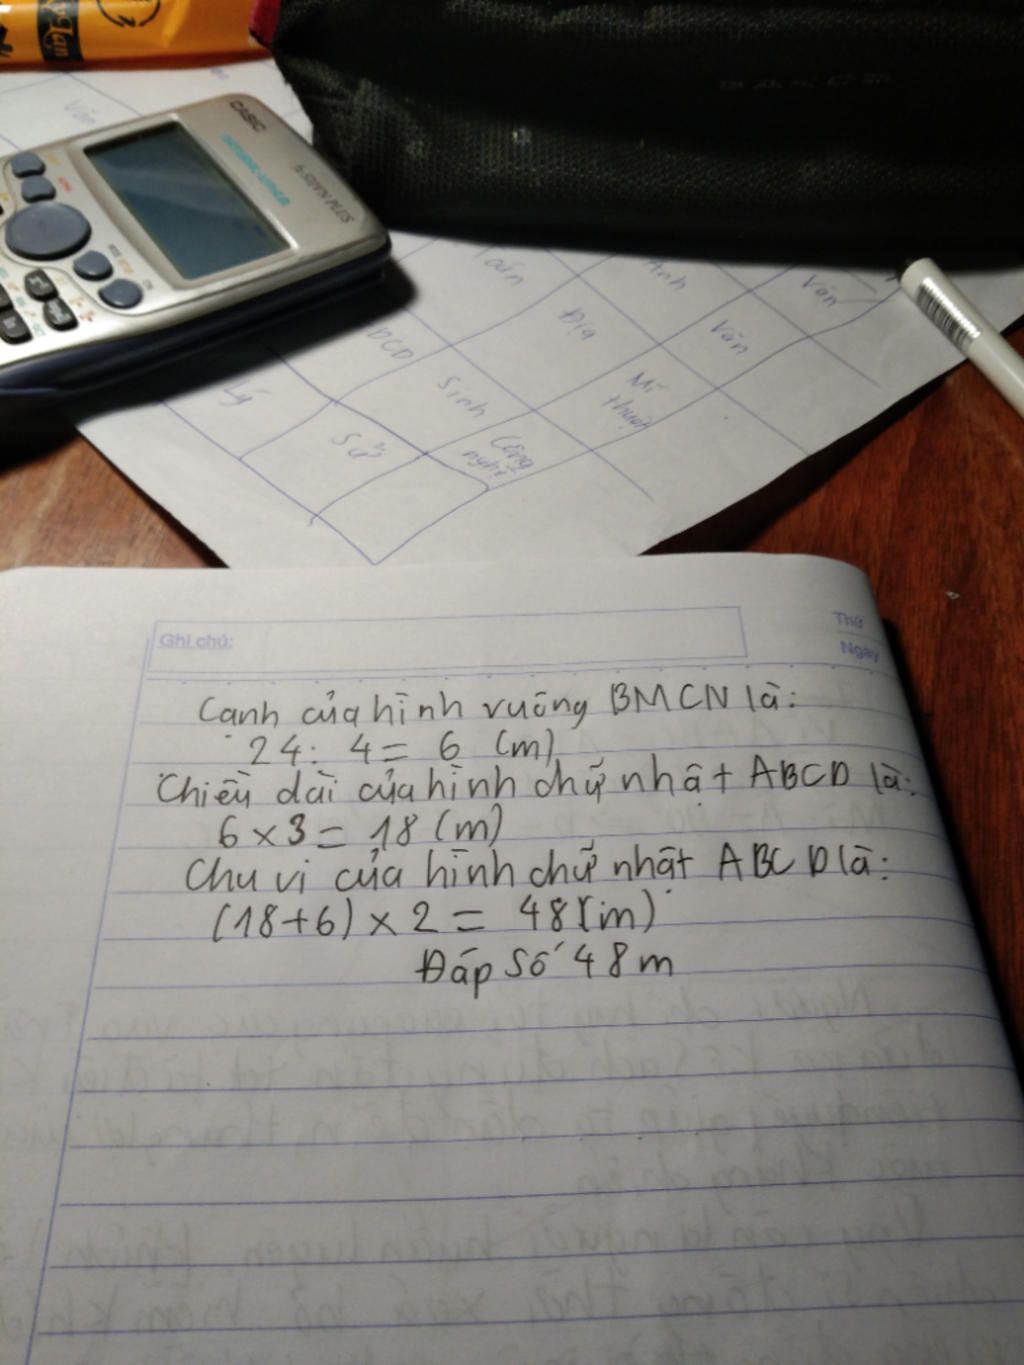 Văn
CASIO
NATURAL-V.P.A.M.
fx-570VN PLUS
Toán
Anh
Văn
GDCD
Địa
Văn
Lý
Sinh
Mĩ
thuật
Sử
Công
nghệ
Ghi chú:
Thứ
Ngày
Cạnh của hình vuông BMCN là:
24: 4= 6 (m)
Chiều dài của hình chữ nhật ABCD là:
6 x 3 = 18 (m)
Chu vi của hình chữ nhật ABCD là:
(18+6) x 2 = 48 (m)
Đáp số 48m